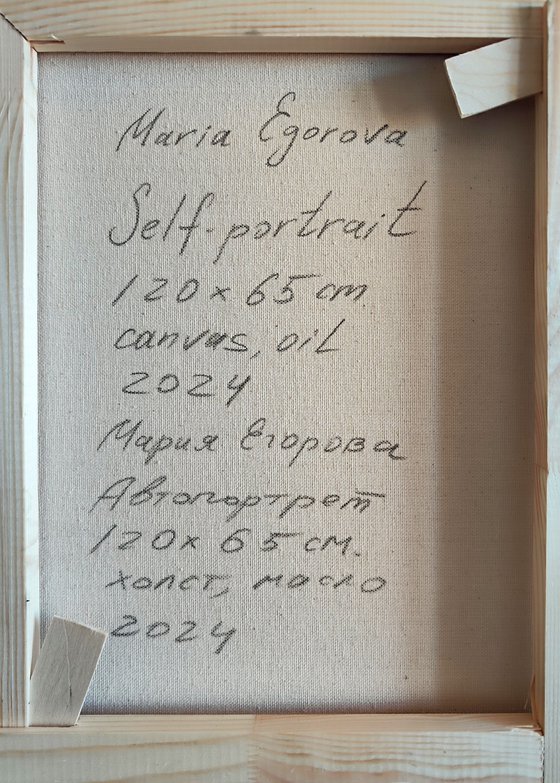 Maria Egorova
Self-portrait
120 x 65 cm
canvas, oil
2024
Мария Егорова
Автопортрет
120 x 65 см.
холст, масло
2024